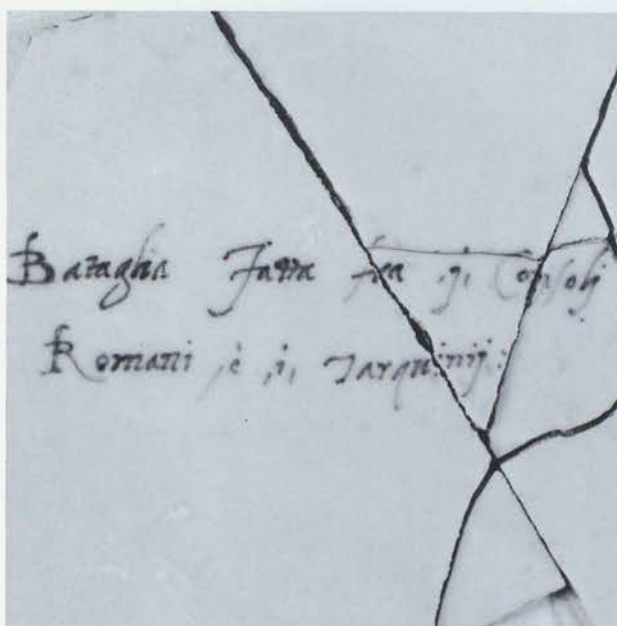 Bataglia Fatta fra ,i, Consolj
Romani ,è ,i, Tarquinij :